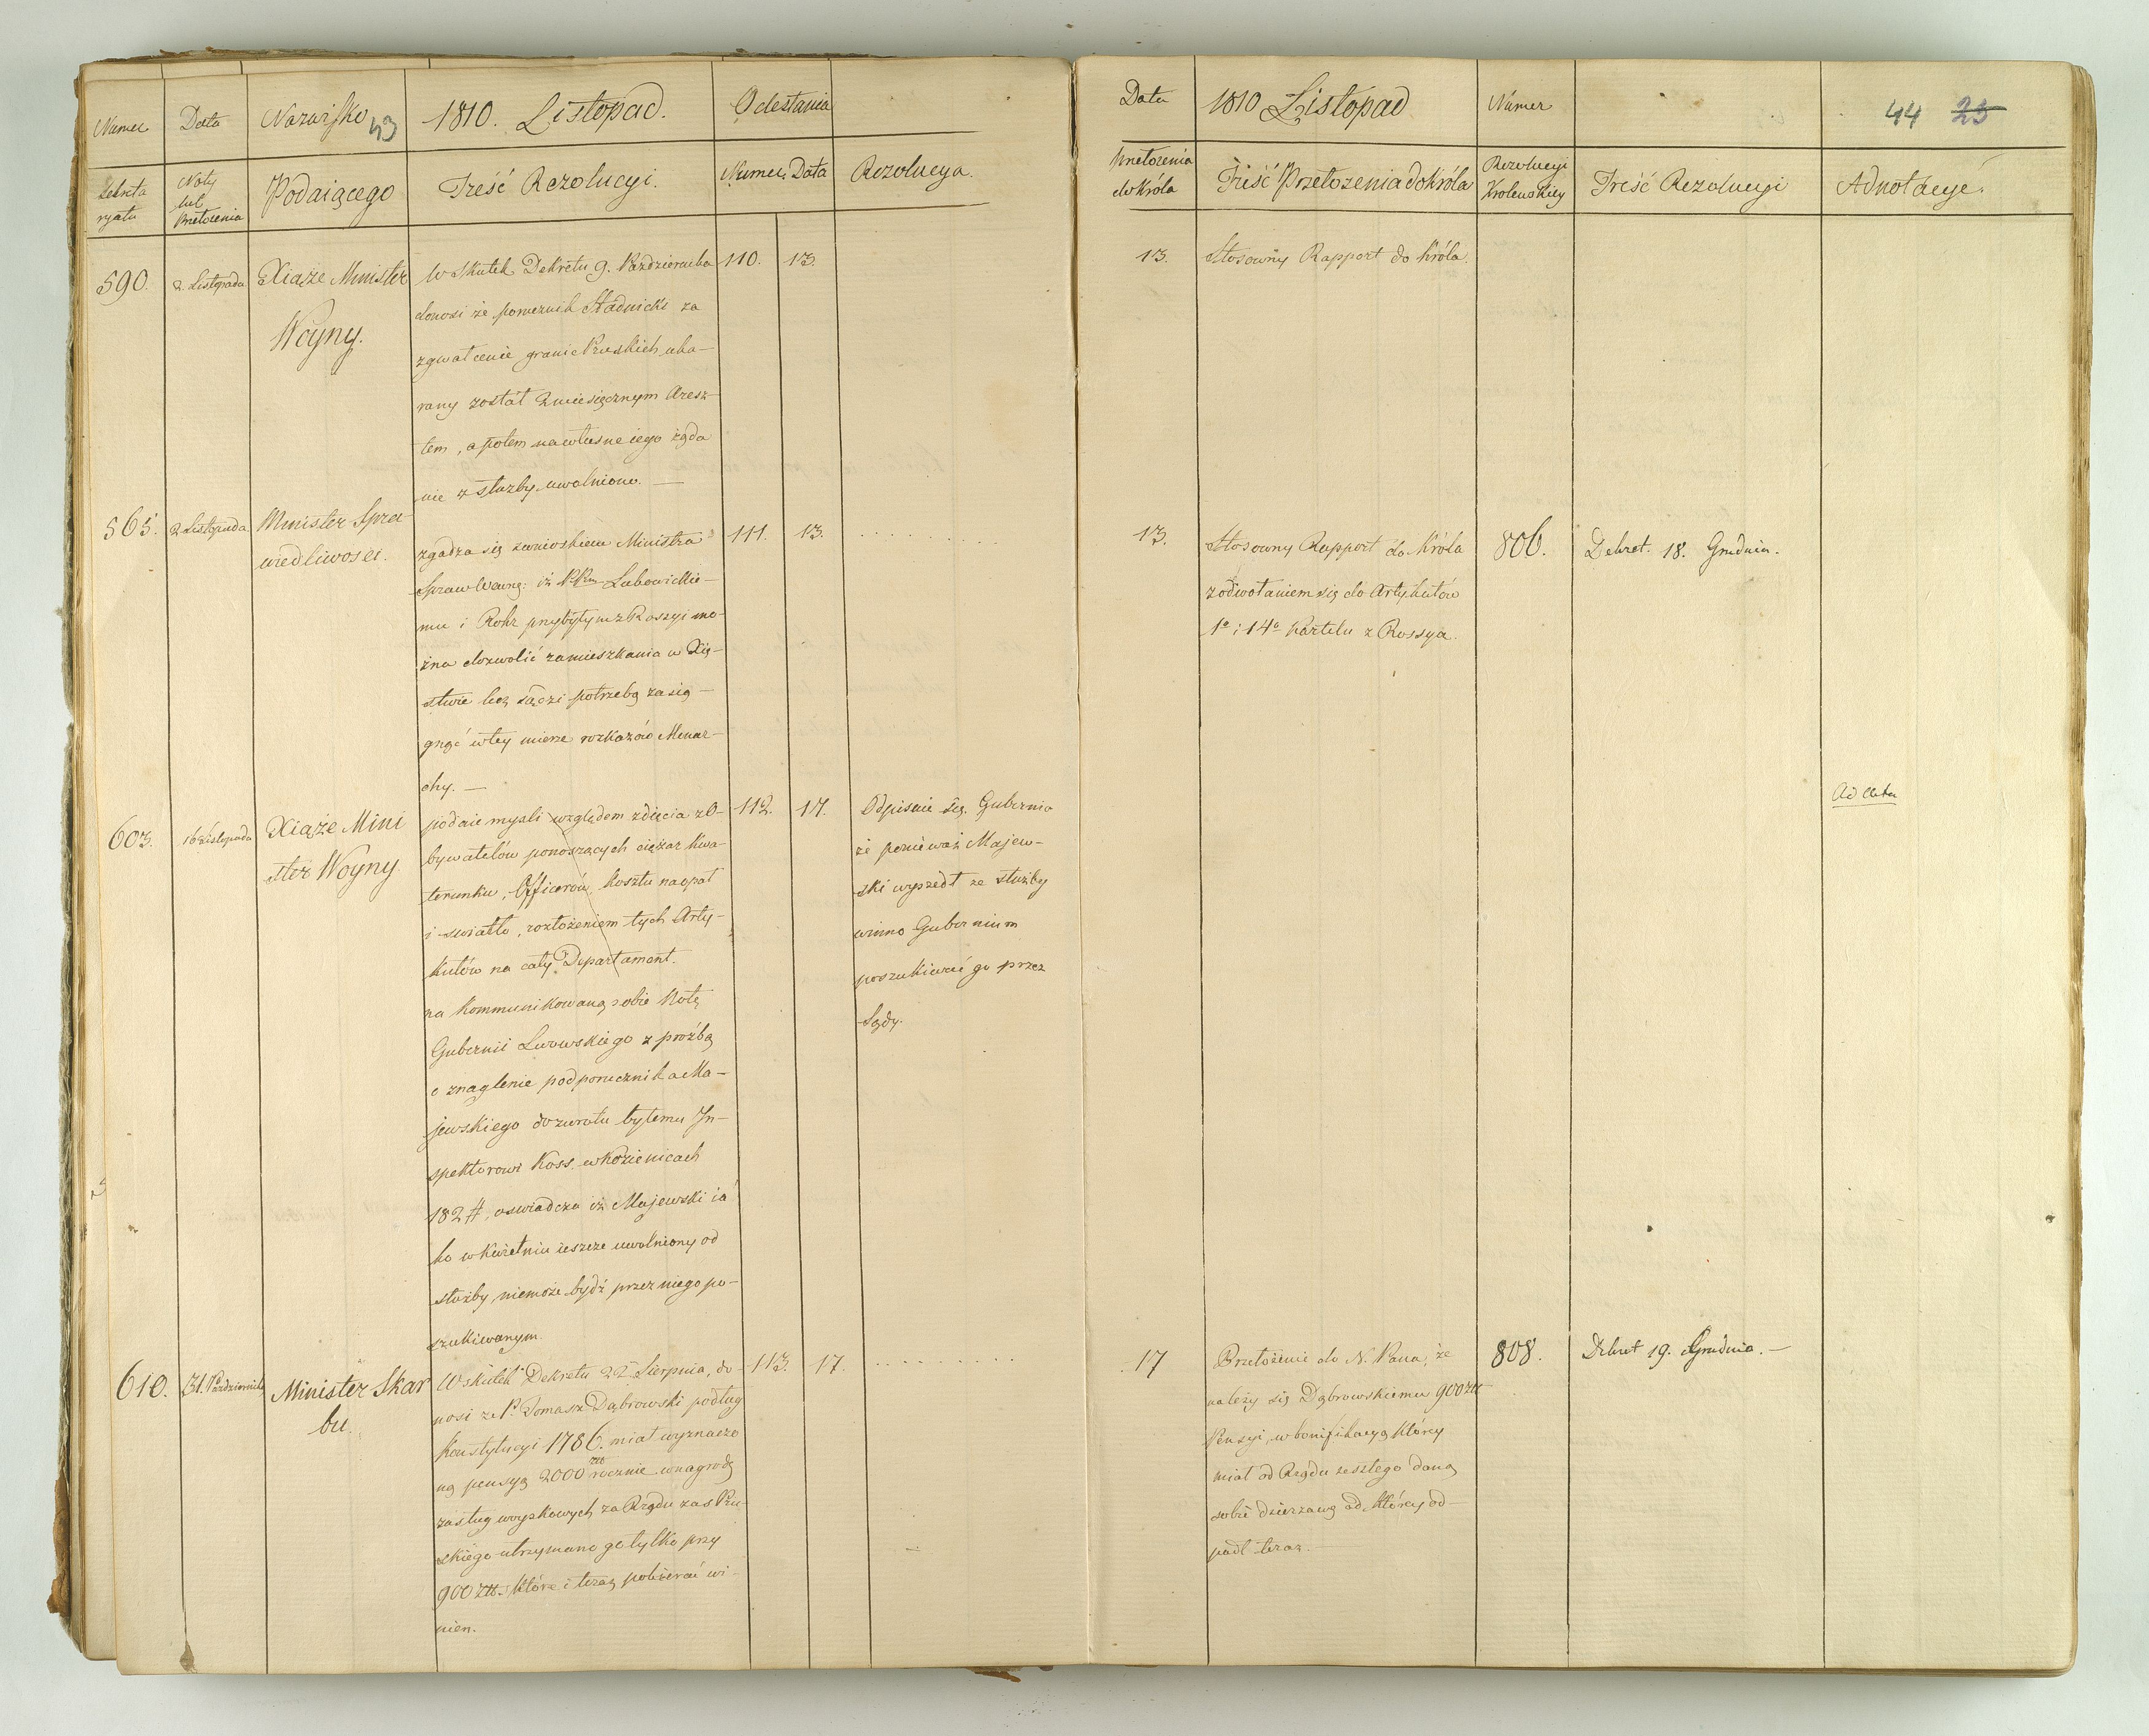 Numer
Data
Nazwisko
43
1810. Listopad.
Odesłania
Sekreta
ryatu
Noty
lub
Przełożenia
Podaiącego
Treść Rezolucyi.
Numer
Data
Rezolucya.
590.
2. Listopada
Xiąże Minister
Woyny.
W skutek Dekretu 9. Października
donosi że porucznik Stadnicki za
zgwałcenie granic Pruskich uka-
rany został 2 miesięcznym Aresz-
tem, a potem na własne iego żąda
nie z służby uwolniono. —
110.
13.
565.
2 Listopada
Minister Spra-
wiedliwości.
zgadza się z wnioskiem Ministra
Spraw Wewnę: iż Łabowickie-
mu i Rohr przybyłym z Rossyi mo-
żna dozwolić zamieszkania w Xię-
stwie lecz sądzi potrzebą zasią-
gnąć w tey mierze rozkazów Monar-
chy. —
111.
13.
. . . . . . . . .
603.
16 Listopada
Xiąże Mini
ster Woyny.
podaie mysli względem zdięcia z O-
bywatelów ponoszących ciężar kwa-
terunku, Officerów, kosztu na opał
i swiatło, rozłożeniem tych Arty-
kułów na cały Departament.
na kommunikowaną sobie Notę
Gubernii Lwowskiego z prośbą
o znaglenie podporucznika Ma-
jewskiego do zwrotu byłemu In-
spektorowi Koss. w Kozienicach
182 #, oswiadcza iż Majewski ia
ko w Kwietniu ieszcze uwolniony od
służby niemoże bydź przez niego po-
szukiwanym.
112.
17.
Odpisuie się Gubernio
że ponieważ Majew-
ski wyszedł ze służby
winno Gubernium
poszukiwać go przez
Sądy.
610.
31. Października
Minister Skar
bu.
W skutek Dekretu 22 Sierpnia, do-
nosi że P. Tomasz Dąbrowski podług
Konstytucyi 1786. miał wyznaczo
ną pensyą 2000 złł rocznie w nagrodę
zasług woyskowych za Rządu zas Pru-
skiego utrzymano go tylko przy
900 złł. które i teraz pobierać wi-
nien.
113.
17.
. . . . . . . . .
Data
1810 Listopad
Numer
44 25
Przełożenia
do Króla
Treść Przełożenia do Króla
Rezolucyi
Królewskiey
Treść Rezolucyi
Adnotacye.
13.
Stosowny Rapport do Króla.
13.
Stosowny Rapport do Króla
z odwołaniem się do Artykułów
1º i 14º Kartelu z Rossyą.
806.
Dekret. 18. Grudnia.
Ad Acta
17
Przełożenie do N. Pana, że
należy się Dąbrowskiemu 900 złł
Pensyi, w bonifikacyą którey
miał od Rządu zeszłego daną
sobie dzierżawę od którey od-
padł teraz. —
808.
Dekret 19. Grudnia. —